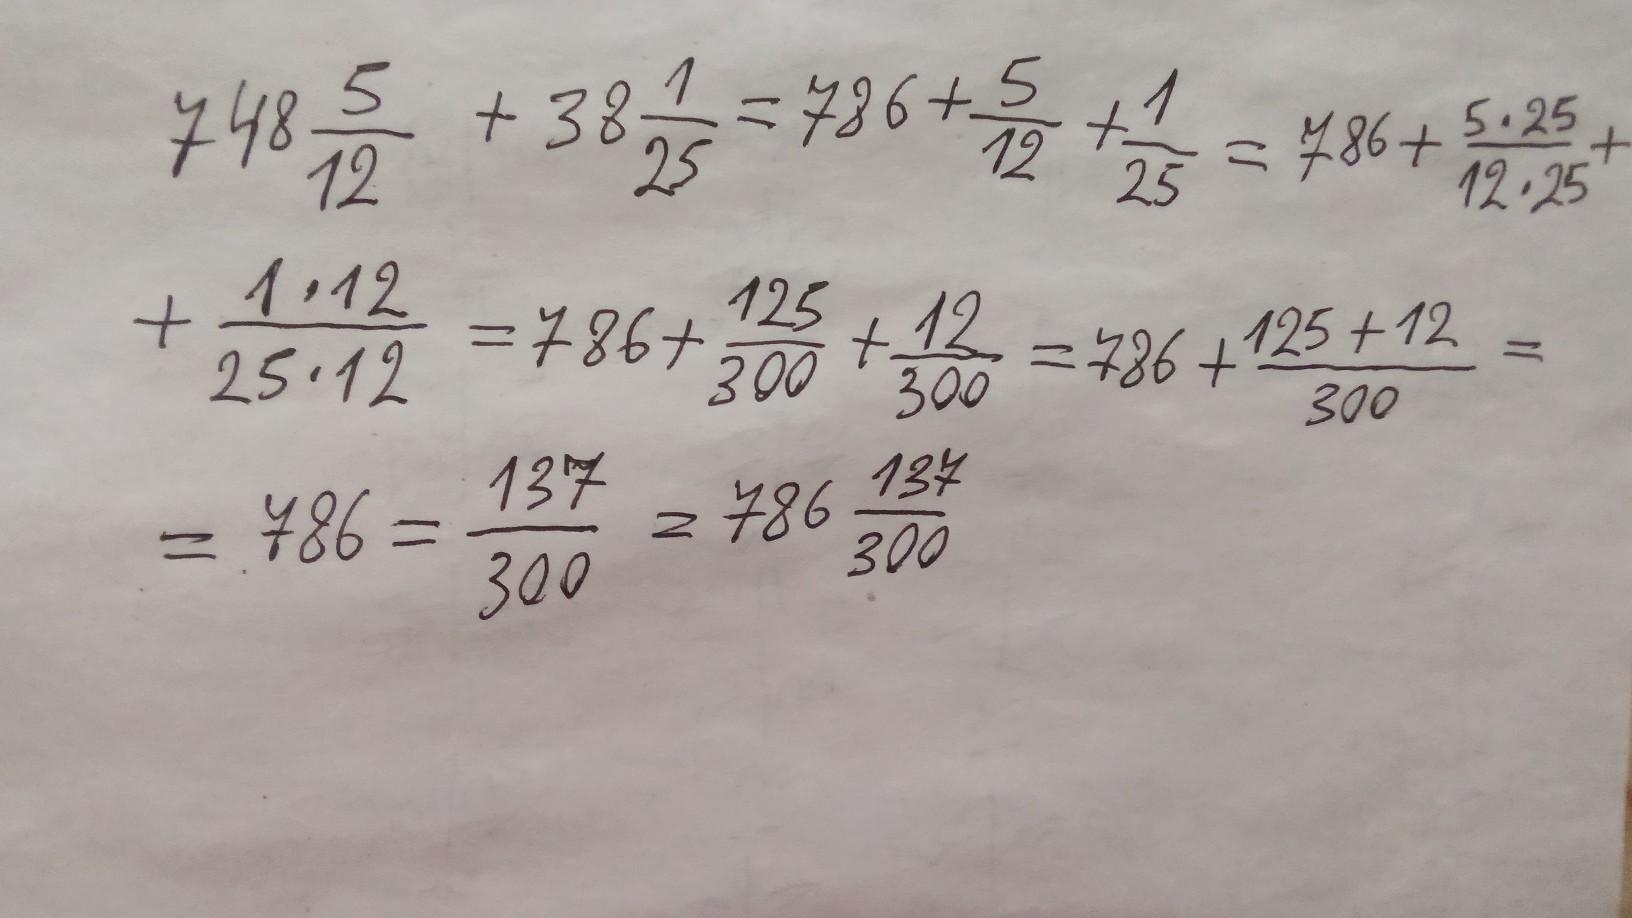 748 5/12 + 38 1/25 = 786 + 5/12 + 1/25 = 786 + 5·25/12·25 +
+ 1·12/25·12 = 786 + 125/300 + 12/300 = 786 + 125+12/300 =
= 786 = 137/300 = 786 137/300